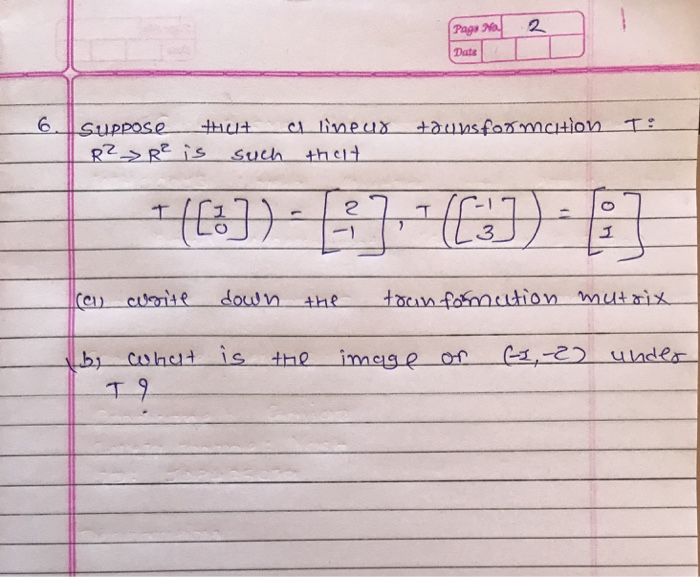 Page No. 2
Date
6. Suppose that a linear transformation T:
R² → R² is such that
T([1 0]) = [2 -1], T([-1 3]) = [0 1]
(a) write down the tranformation matrix
(b) what is the image of (-1,-2) under
T ?